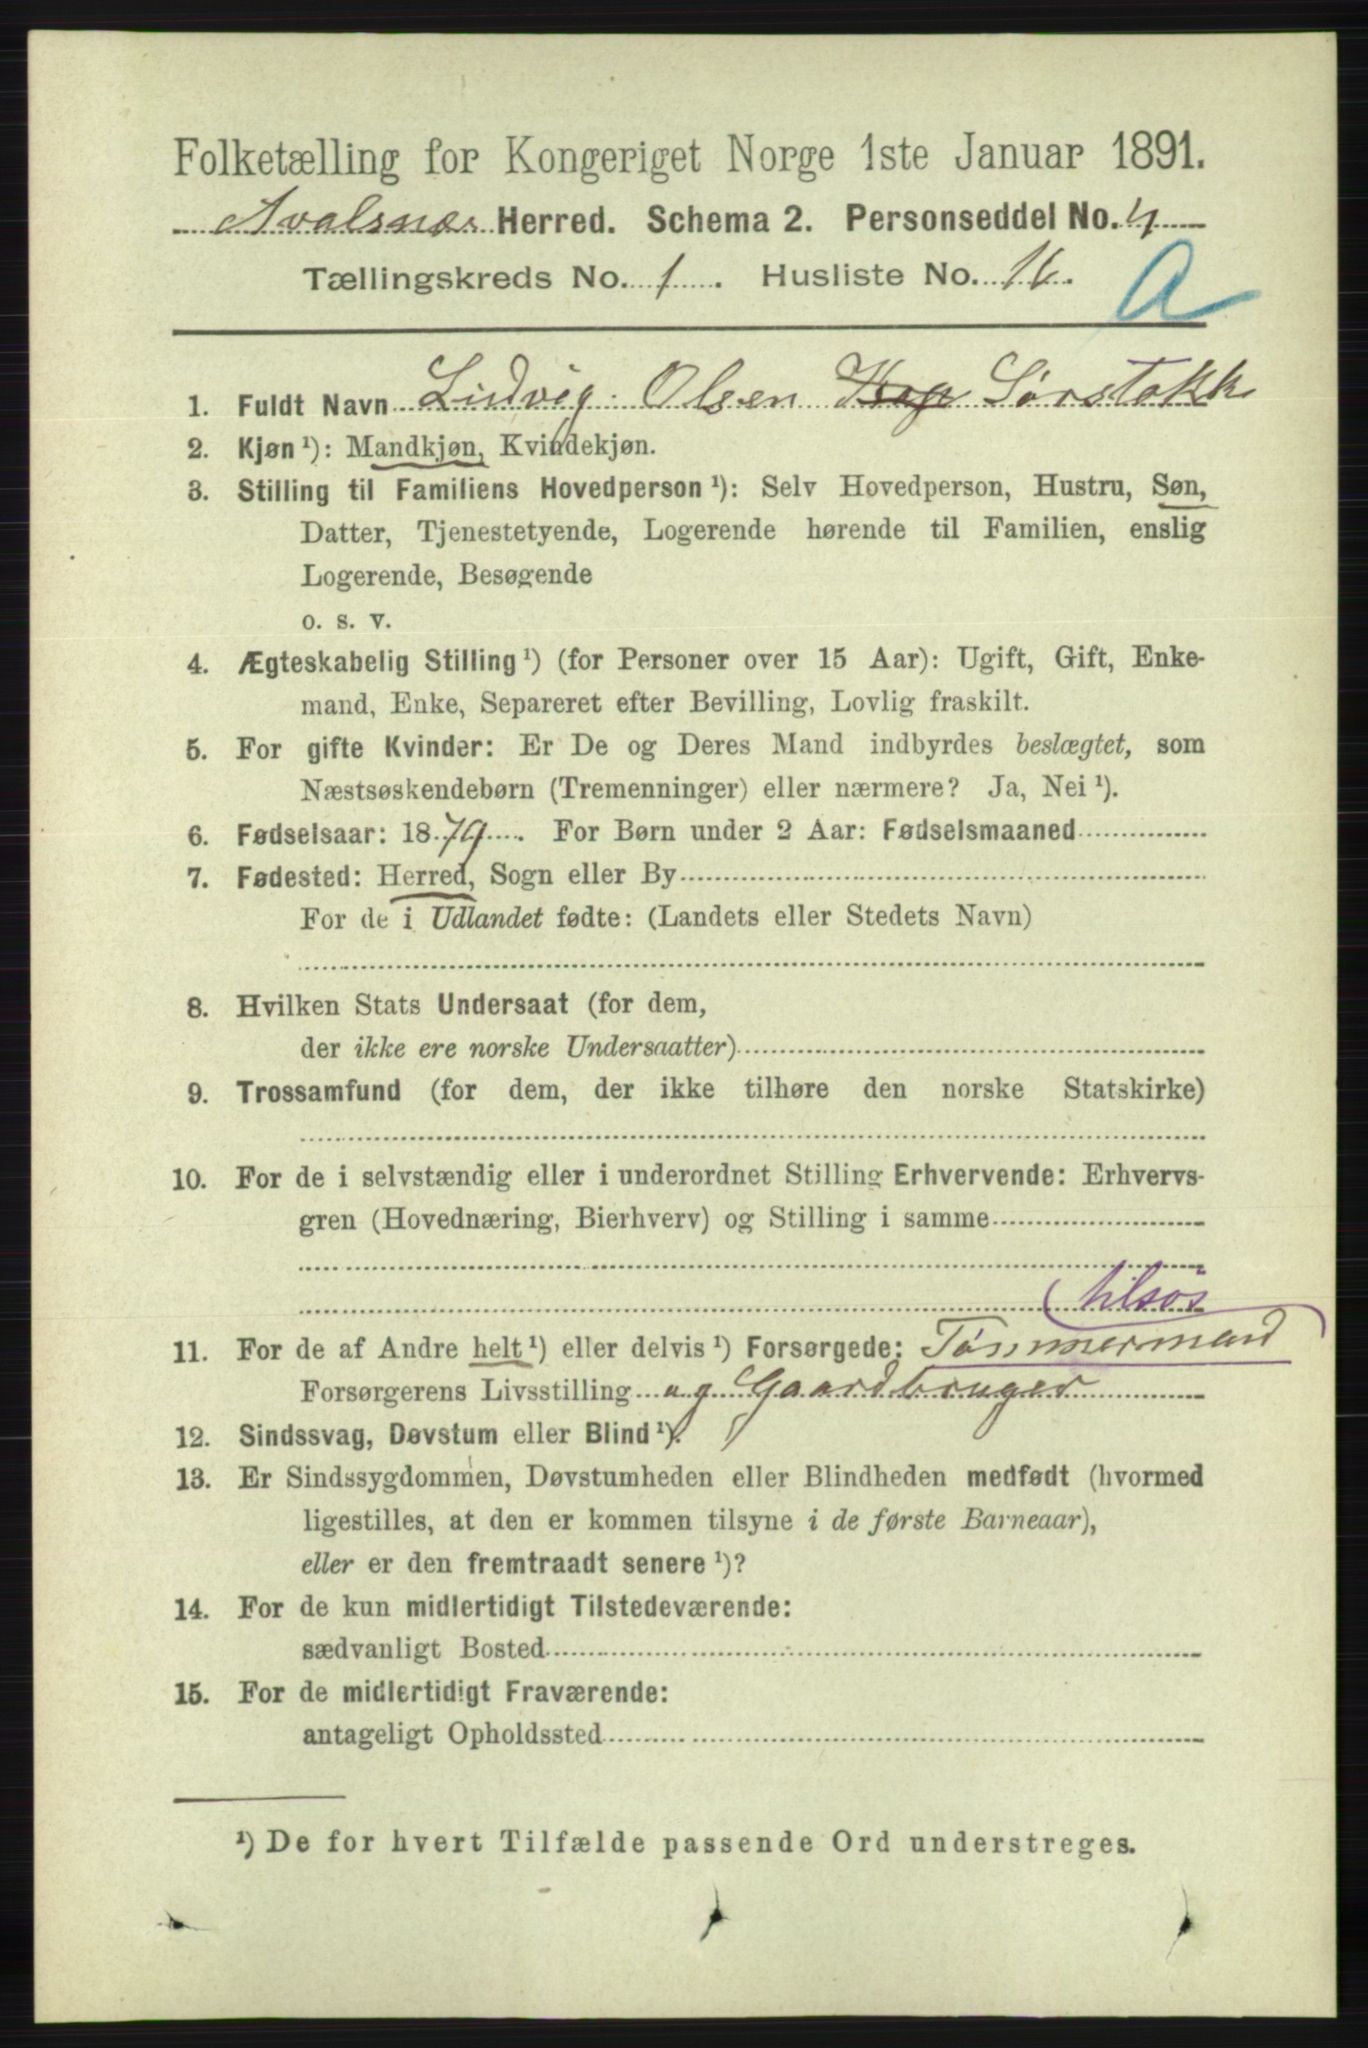 Folketælling for Kongeriget Norge 1ste Januar 1891.
Avalsnæs Herred. Schema 2. Personseddel No. 4
Tællingskreds No. 1. Husliste No. 16.
A
1. Fuldt Navn Ludvig Olsen Sørstokke
2. Kjøn ¹): Mandkjøn, Kvindekjøn.
3. Stilling til Familiens Hovedperson ¹): Selv Hovedperson, Hustru, Søn,
Datter, Tjenestetyende, Logerende hørende til Familien, enslig
Logerende, Besøgende
o. s. v.
4. Ægteskabelig Stilling ¹) (for Personer over 15 Aar): Ugift, Gift, Enke-
mand, Enke, Separeret efter Bevilling, Lovlig fraskilt.
5. For gifte Kvinder: Er De og Deres Mand indbyrdes beslægtet, som
Næstsøskendebørn (Tremenninger) eller nærmere? Ja, Nei ¹).
6. Fødselsaar: 1879. For Børn under 2 Aar: Fødselsmaaned
7. Fødested: Herred, Sogn eller By
For de i Udlandet fødte: (Landets eller Stedets Navn)
8. Hvilken Stats Undersaat (for dem,
der ikke ere norske Undersaatter)
9. Trossamfund (for dem, der ikke tilhøre den norske Statskirke)
10. For de i selvstændig eller i underordnet Stilling Erhvervende: Erhvervs-
gren (Hovednæring, Bierhverv) og Stilling i samme
tilsøs
11. For de af Andre helt ¹) eller delvis ¹) Forsørgede: Tømmermand
Forsørgerens Livsstilling og Gaardbruger
12. Sindssvag, Døvstum eller Blind ¹).
13. Er Sindssygdommen, Døvstumheden eller Blindheden medfødt (hvormed
ligestilles, at den er kommen tilsyne i de første Barneaar),
eller er den fremtraadt senere ¹)?
14. For de kun midlertidigt Tilstedeværende:
sædvanligt Bosted
15. For de midlertidigt Fraværende:
antageligt Opholdssted
¹) De for hvert Tilfælde passende Ord understreges.